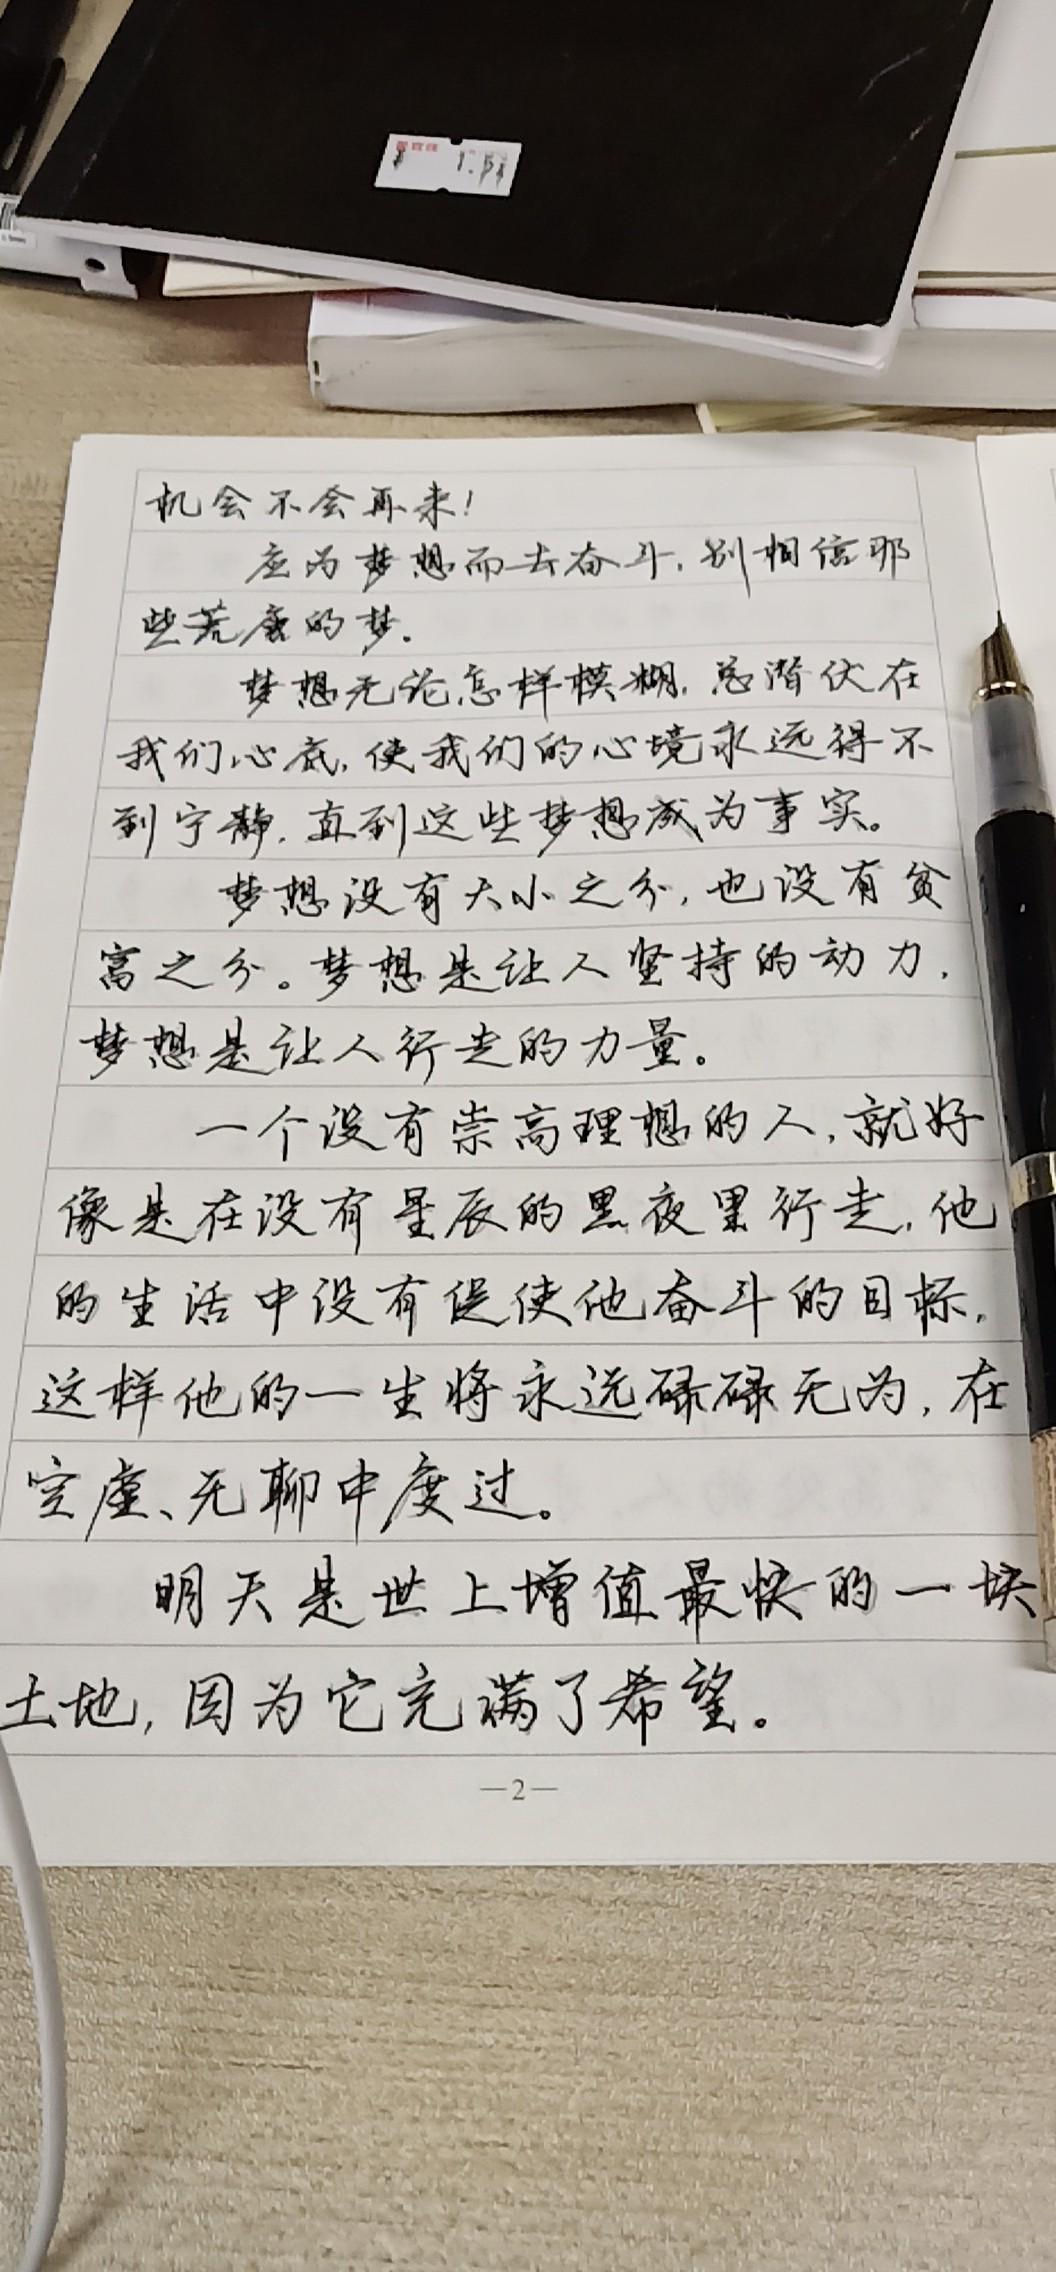 机会不会再来!
应为梦想而去奋斗,别相信那
些荒唐的梦.
梦想无论怎样模糊,总潜伏在
我们心底,使我们的心境永远得不
到宁静,直到这些梦想成为事实。
梦想没有大小之分,也没有贫
富之分。梦想是让人坚持的动力,
梦想是让人行走的力量。
一个没有崇高理想的人,就好
像是在没有星辰的黑夜里行走,他
的生活中没有促使他奋斗的目标,
这样他的一生将永远碌碌无为,在
空虚、无聊中度过。
明天是世上增值最快的一块
土地,因为它充满了希望。
—2—